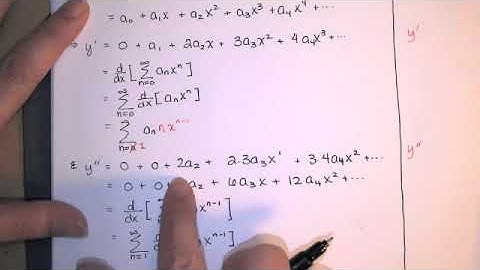 = a₀ + a₁x + a₂x² + a₃x³ + a₄x⁴ + ⋯
y' = 0 + a₁ + 2a₂x + 3a₃x² + 4a₄x³ + ⋯ y'
= d/dx [ ∑_{n=0}^{∞} aₙxⁿ ]
= ∑_{n=0}^{∞} d/dx [ aₙxⁿ ]
= ∑_{n=1}^{∞} aₙ n xⁿ⁻¹
& y'' = 0 + 0 + 2a₂ + 2·3a₃x¹ + 3·4a₄x² + ⋯ y''
= 0 + 0 + a₂ + 6a₃x + 12a₄x² + ⋯
= d/dx [ xⁿ⁻¹ ]
= ∑_{n=1}^{∞} d xⁿ⁻¹ ]